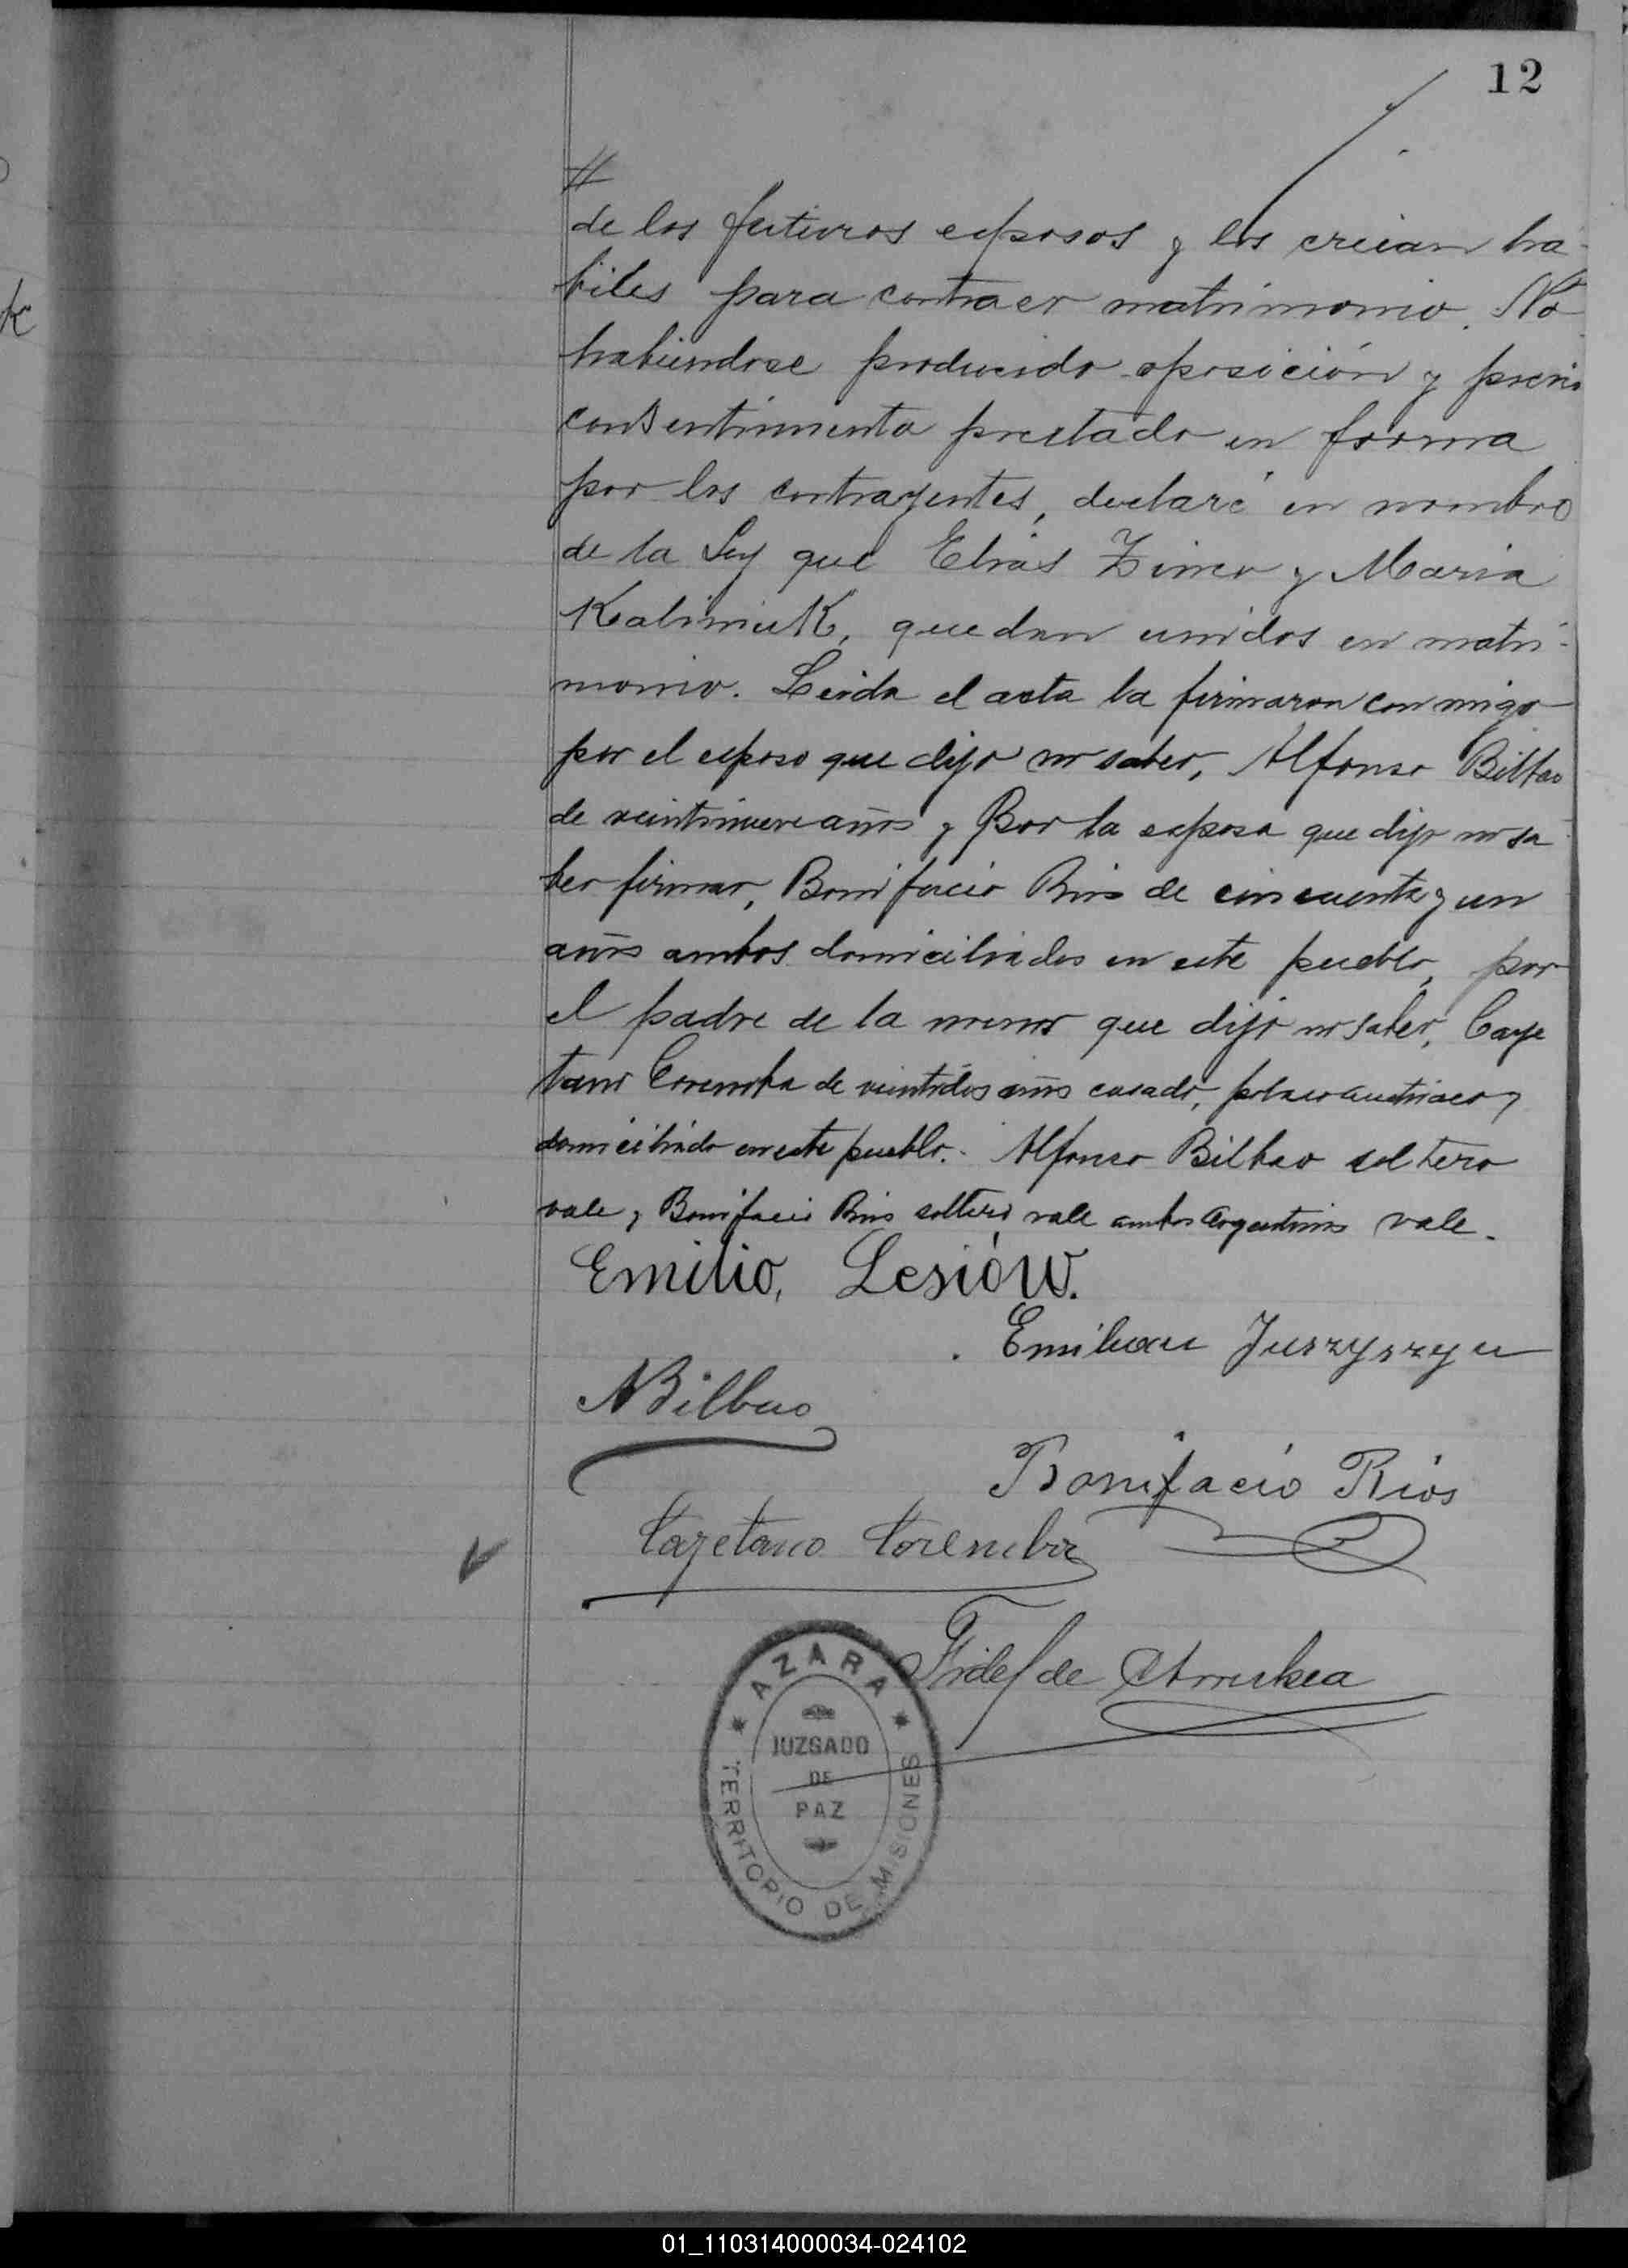 12
//
de los futuros esposos y los creian ha-
biles para contraer matrimonio. No
habiendose producido oposición y previo
consentimiento prestado en forma
por los contrayentes, declaré en nombre
de la Ley que Elias Zimco y Maria
Kalimiuk, quedan unidos en matri-
monio. Leida el acta la firmaron conmigo
por el esposo que dijo no saber, Alfonso Bilbao
de veintinueve años y Por la esposa que dijo no sa
ber firmar, Bonifacio Rios de cincuenta y un
años ambos domiciliados en este pueblo, por
el padre de la menor que dijo no saber, Caye
tano de veintidos años casado, polaco austriaco y
domiciliado en este pueblo. Alfonso Bilbao soltero
vale y Bonifacio Rios soltero vale ambos Argentinos vale.
Emilio, Lesiów.
Emilian Juszyszyn
ABilbao
Bonifacio Rios
Cayetano
Fidel de
AZARA
JUZGADO
DE
PAZ
TERRITORIO DE MISIONES
01_110314000034-024102